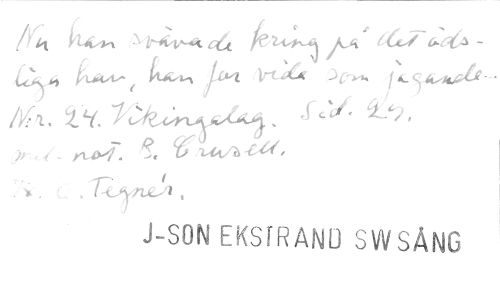 Nu han svävade kring på det öds-
liga hav, han for vida som jagande...
N:r. 24. Vikingalag. Sid. 29.
mel. not. B. Crusell.
E. Tegnér.
J-SON EKSTRAND SW SÅNG